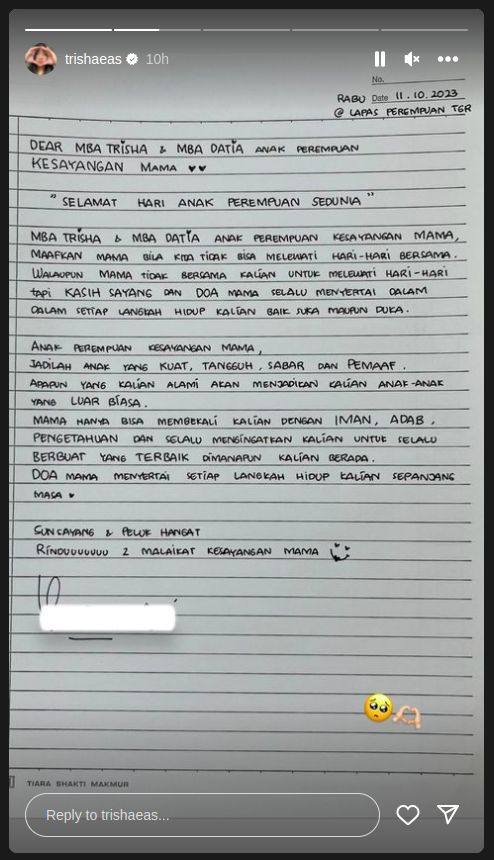 trishaeas 10h
No.
RABU Date 11.10.2023
@ LAPAS PEREMPUAN TGR
DEAR MBA TRISHA & MBA DATIA ANAK PEREMPUAN
KESAYANGAN MAMA ♥♥
"SELAMAT HARI ANAK PEREMPUAN SEDUNIA"
MBA TRISHA & MBA DATIA ANAK PEREMPUAN KESAYANGAN MAMA,
MAAFKAN MAMA BILA KITA TIDAK BISA MELEWATI HARI-HARI BERSAMA.
WALAUPUN MAMA TIDAK BERSAMA KALIAN UNTUK MELEWATI HARI-HARI
tapi KASIH SAYANG DAN DOA MAMA SELALU MENYERTAI DALAM
DALAM SETIAP LANGKAH HIDUP KALIAN BAIK SUKA MAUPUN DUKA.
ANAK PEREMPUAN KESAYANGAN MAMA,
JADILAH ANAK YANG KUAT, TANGGUH, SABAR DAN PEMAAF.
APAPUN YANG KALIAN ALAMI AKAN MENJADIKAN KALIAN ANAK-ANAK
YANG LUAR BIASA.
MAMA HANYA BISA MEMBEKALI KALIAN DENGAN IMAN, ADAB,
PENGETAHUAN DAN SELALU MENGINGATKAN KALIAN UNTUK SELALU
BERBUAT YANG TERBAIK DIMANAPUN KALIAN BERADA.
DOA MAMA MENYERTAI SETIAP LANGKAH HIDUP KALIAN SEPANJANG
MASA ♥
SUN SAYANG & PELUK HANGAT
RINDUUUUUUU 2 MALAIKAT KESAYANGAN MAMA
TIARA SHAKTI MAKMUR
Reply to trishaeas...